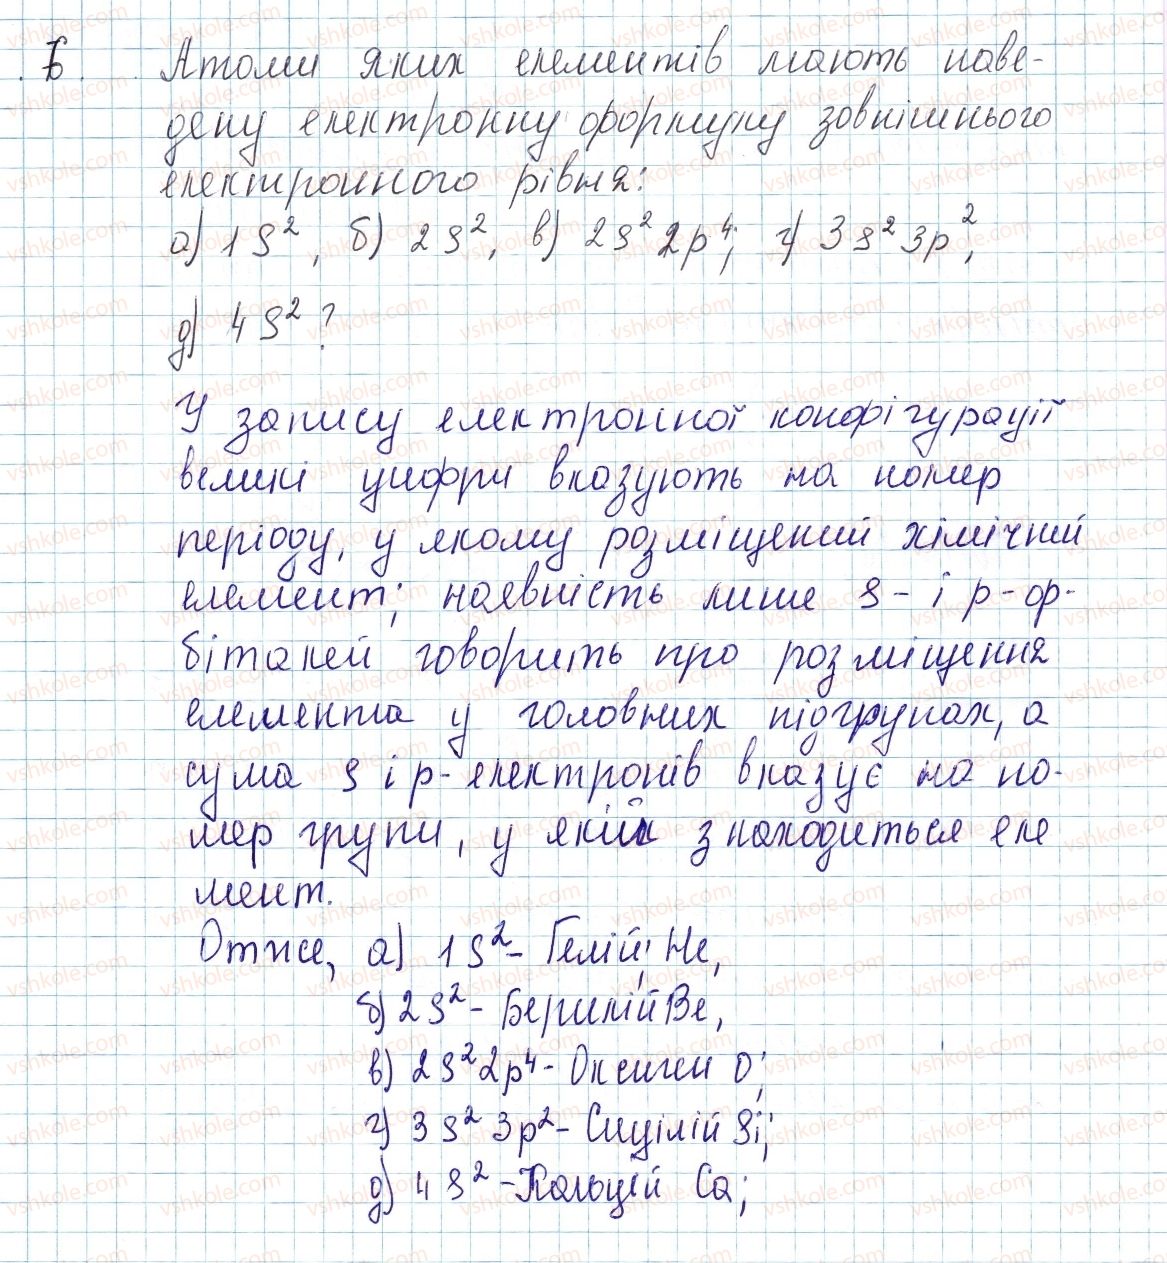 6. Атоми яких елементів мають наве-
дену електронну формулу зовнішнього
електронного рівня:
а) 1s², б) 2s², в) 2s²2p⁴; г) 3s²3p²,
д) 4s²?
У запису електронної конфігурації
великі цифри вказують на номер
періоду, у якому розміщений хімічний
елемент; наявність лише s- і p-ор-
біталей говорить про розміщення
елемента у головних підгрупах, а
сума s і p-електронів вказує на но-
мер групи, у якій знаходиться еле
мент.
Отже, а) 1s² - Гелій; He,
б) 2s² - Берилій Be,
в) 2s²2p⁴ - Оксиген O;
г) 3s²3p² - Силіцій Si;
д) 4s² - Кальцій Ca;